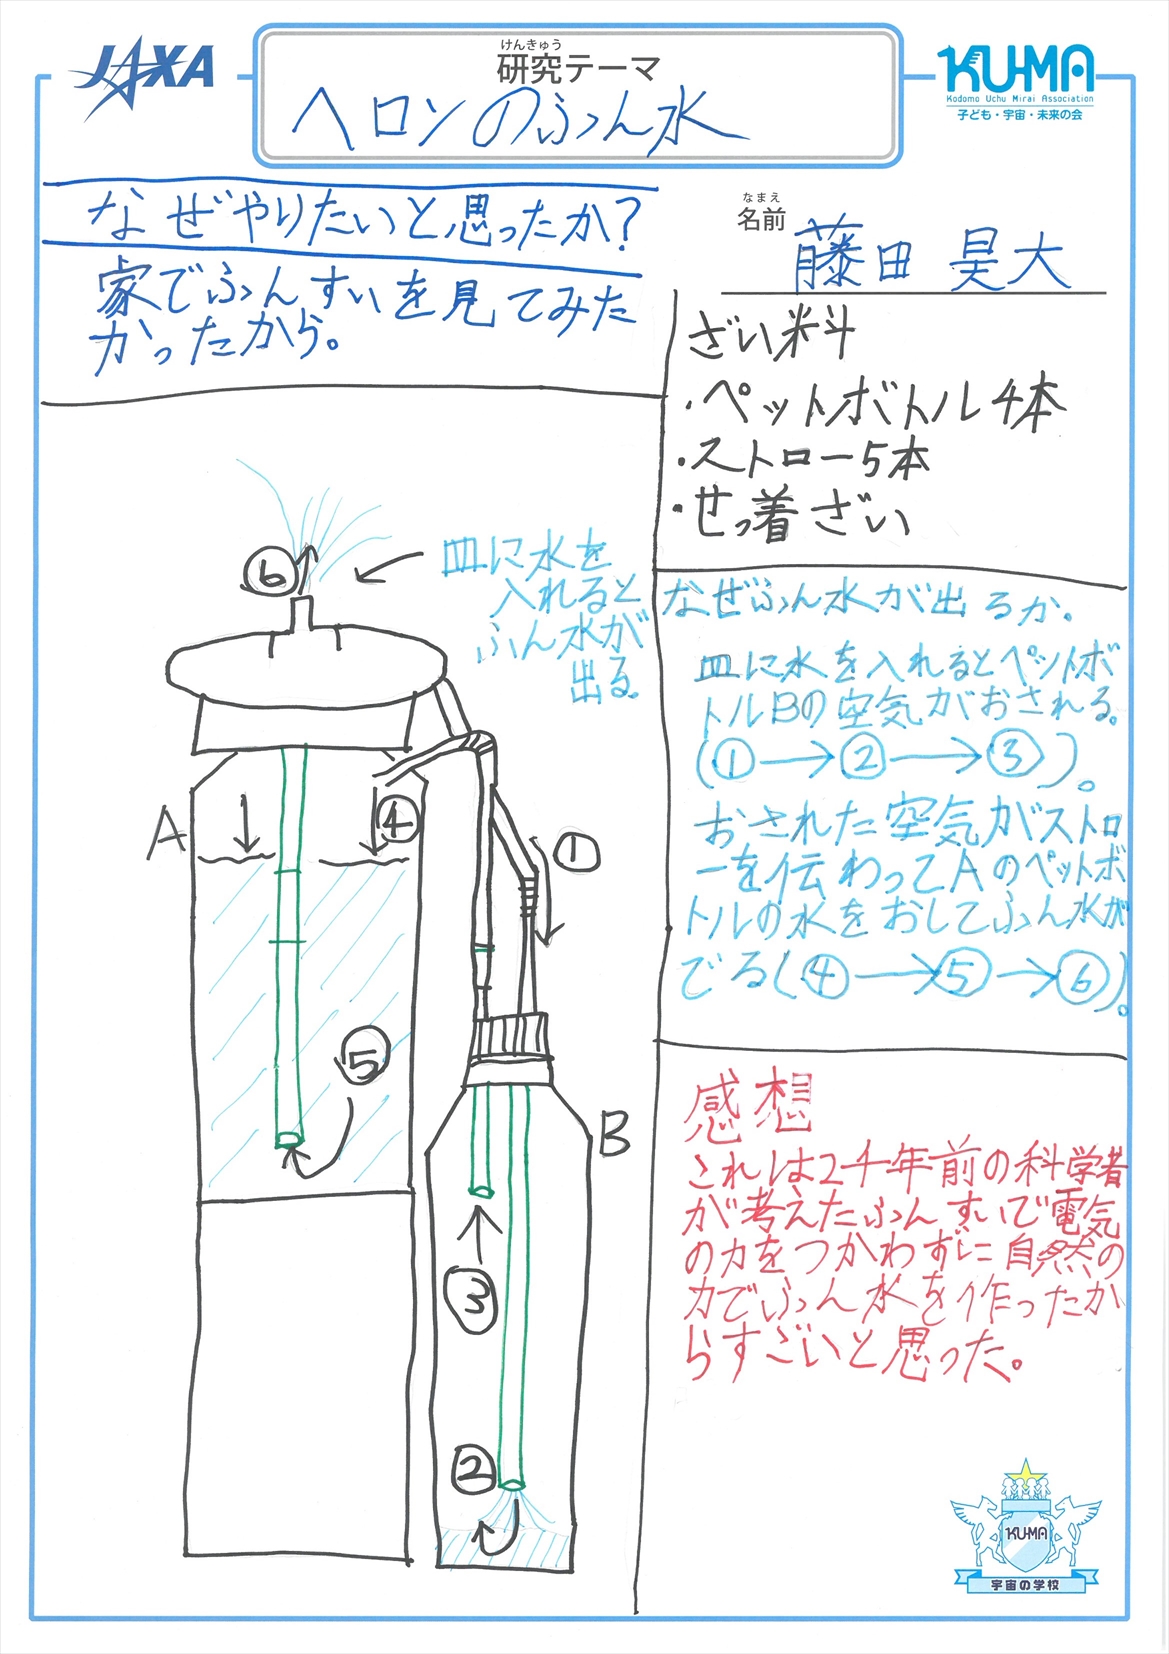 JAXA
けんきゅう
研究テーマ
ヘロンのふん水
KU-MA
Kodomo Uchu Mirai Association
子ども・宇宙・未来の会
なぜやりたいと思ったか？
家でふんすいを見てみた
かったから。
なまえ
名前
藤田 昊大
ざい料
・ペットボトル4本
・ストロー5本
・せっ着ざい
⑥
皿に水を
入れると
ふん水が
出る。
A
④
①
⑤
B
③
②
なぜふん水が出るか。
皿に水を入れるとペットボ
トルBの空気がおされる。
(①→②→③)。
おされた空気がストロ
ーを伝わってAのペットボ
トルの水をおしてふん水が
でる(④→⑤→⑥)。
感想
これは2千年前の科学者
が考えたふんすいで電気
の力をつかわずに自然の
力でふん水を作ったか
らすごいと思った。
KU-MA
宇宙の学校